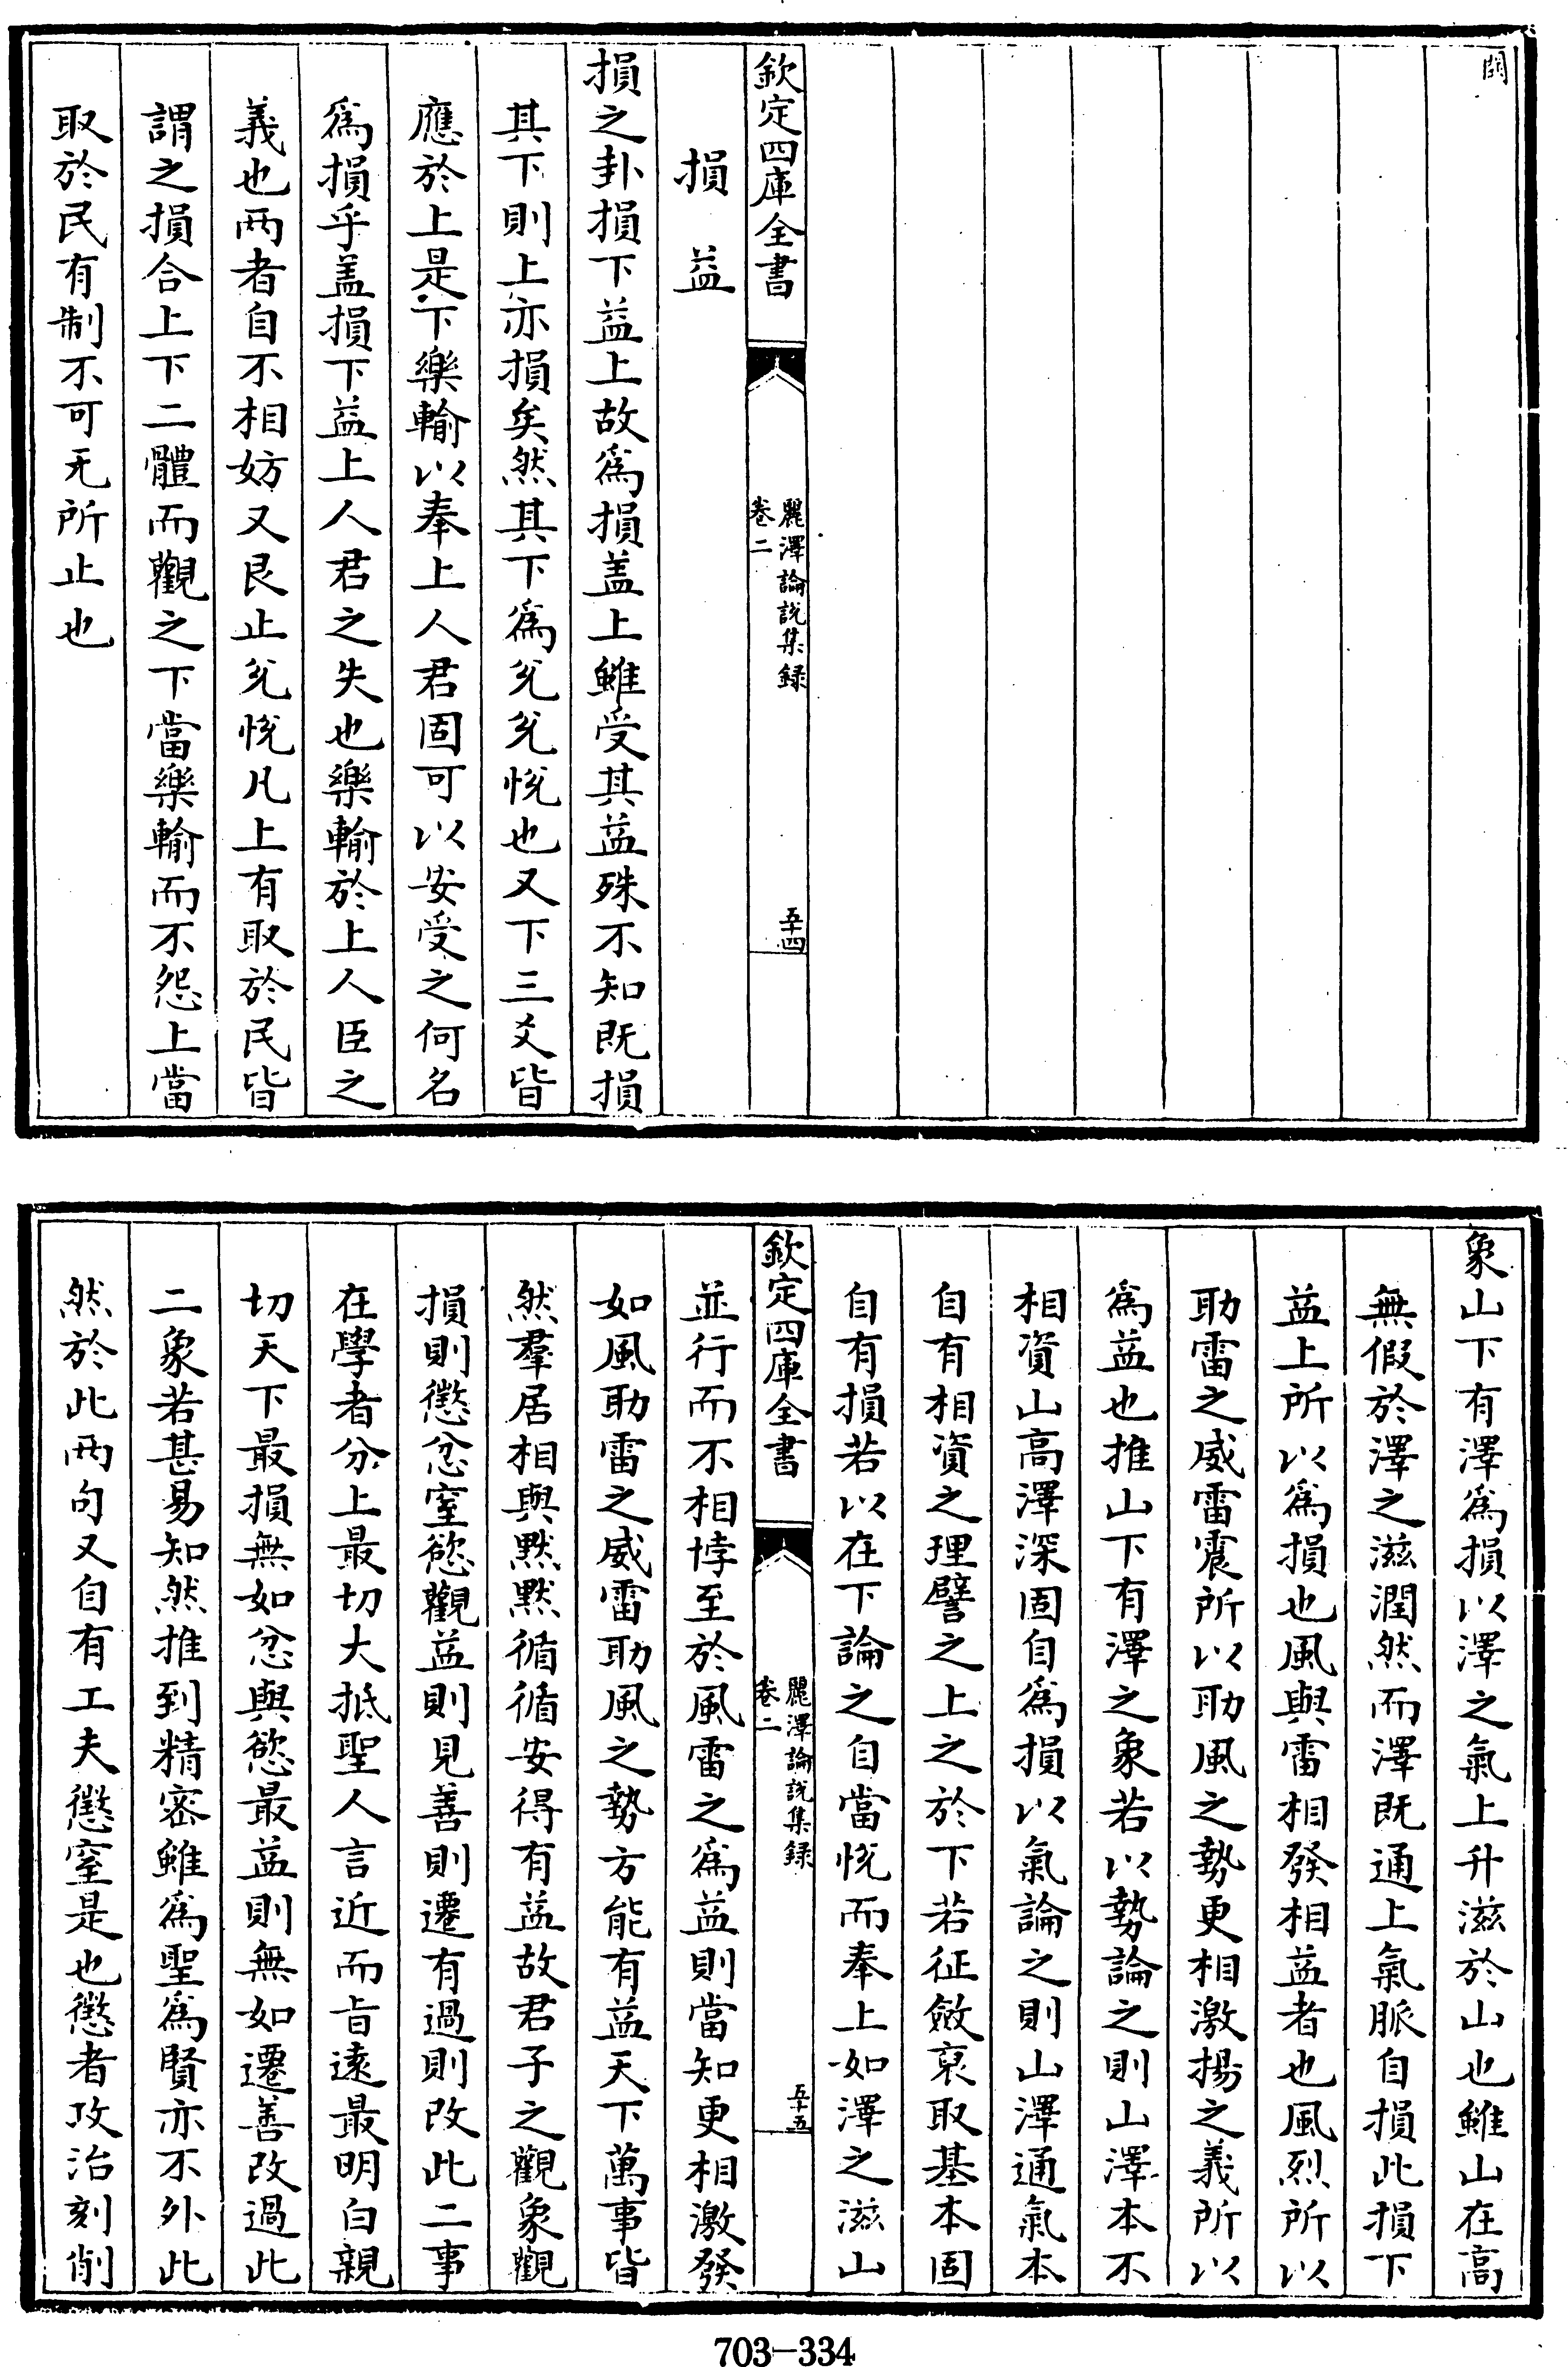 闕
欽定四庫全書
麗澤論說集録
卷二
五十四
損益
損之卦損下益上故為損盖上雖受其益殊不知既損
其下則上亦損矣然其下為兊兊悅也又下三爻皆
應於上是下樂輸以奉上人君固可以安受之何名
為損乎盖損下益上人君之失也樂輸於上人臣之
義也兩者自不相妨又艮止兊悅凡上有取於民皆
謂之損合上下二體而觀之下當樂輸而不怨上當
取於民有制不可无所止也
象山下有澤為損以澤之氣上升滋於山也雖山在高
無假於澤之滋潤然而澤既通上氣脈自損此損下
益上所以為損也風與雷相發相益者也風烈所以
助雷之威雷震所以助風之勢更相激揚之義所以
為益也推山下有澤之象若以勢論之則山澤本不
相資山高澤深固自為損以氣論之則山澤通氣本
自有相資之理譬之上之於下若征斂裒取基本固
自有損若以在下論之自當悅而奉上如澤之滋山
欽定四庫全書
麗澤論說集録
卷二
五十五
並行而不相悖至於風雷之為益則當知更相激發
如風助雷之威雷助風之勢方能有益天下萬事皆
然羣居相與默默循循安得有益故君子之觀象觀
損則懲忿窒慾觀益則見善則遷有過則改此二事
在學者分上最切大抵聖人言近而旨遠最明白親
切天下最損無如忿與慾最益則無如遷善改過此
二象若甚易知然推到精密雖為聖為賢亦不外此
然於此兩句又自有工夫懲窒是也懲者攻治刻削
703-334